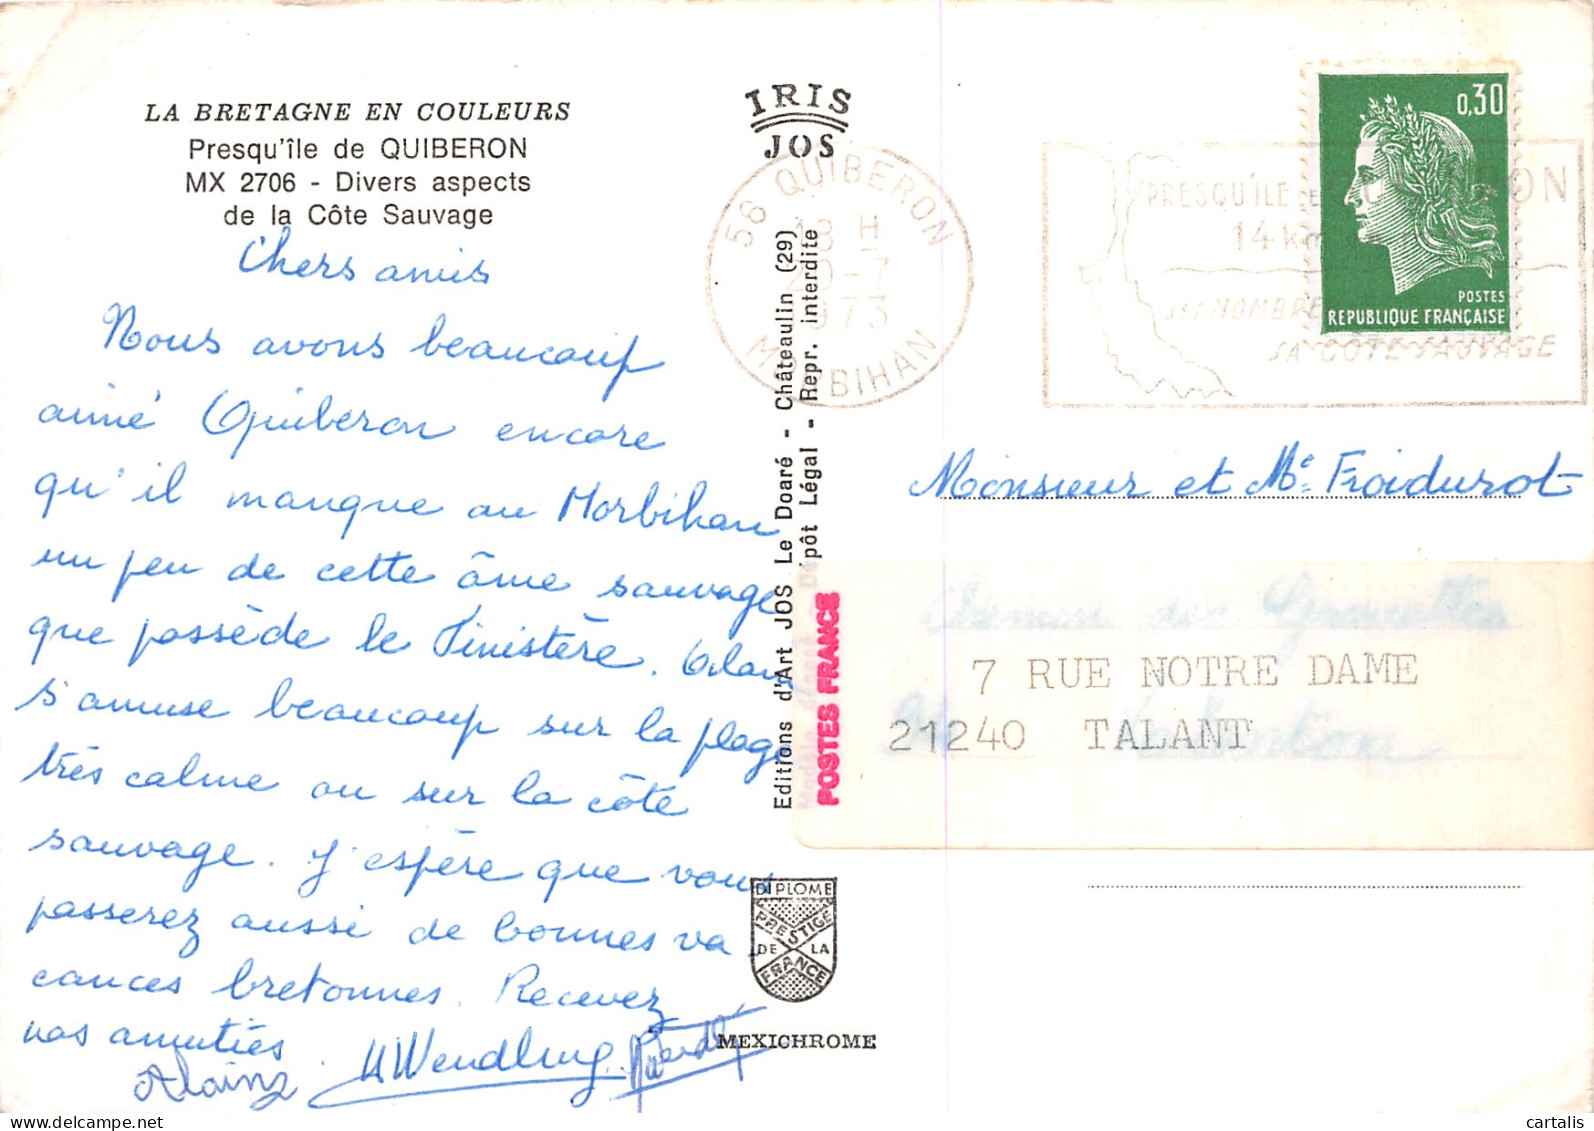 LA BRETAGNE EN COULEURS
Presqu'île de QUIBERON
MX 2706 - Divers aspects
de la Côte Sauvage
Chers amis
Nous avons beaucoup
aimé Quiberon encore
qu'il manque au Morbihan
un peu de cette âme sauvage
que possède le Finistère. Alain
s'amuse beaucoup sur la plage
très calme ou sur la côte
sauvage. J'espère que vous
passerez aussi de bonnes va
cances bretonnes. Recevez
nos amitiés.
Alain
Wendling
IRIS
JOS
Editions d'Art JOS Le Doaré - Châteaulin (29)
Dépôt Légal - Repr. interdite
POSTES FRANCE
DIPLOME
PRESTIGE
DE LA
FRANCE
MEXICHROME
56 QUIBERON
18 H
20-7
1973
MORBIHAN
PRESQU'ÎLE DE QUIBERON
14 km
SA CÔTE SAUVAGE
0,30
POSTES
REPUBLIQUE FRANÇAISE
Monsieur et Me Froidurot
7 RUE NOTRE DAME
21240 TALANT
© delcampe.net
cartalis